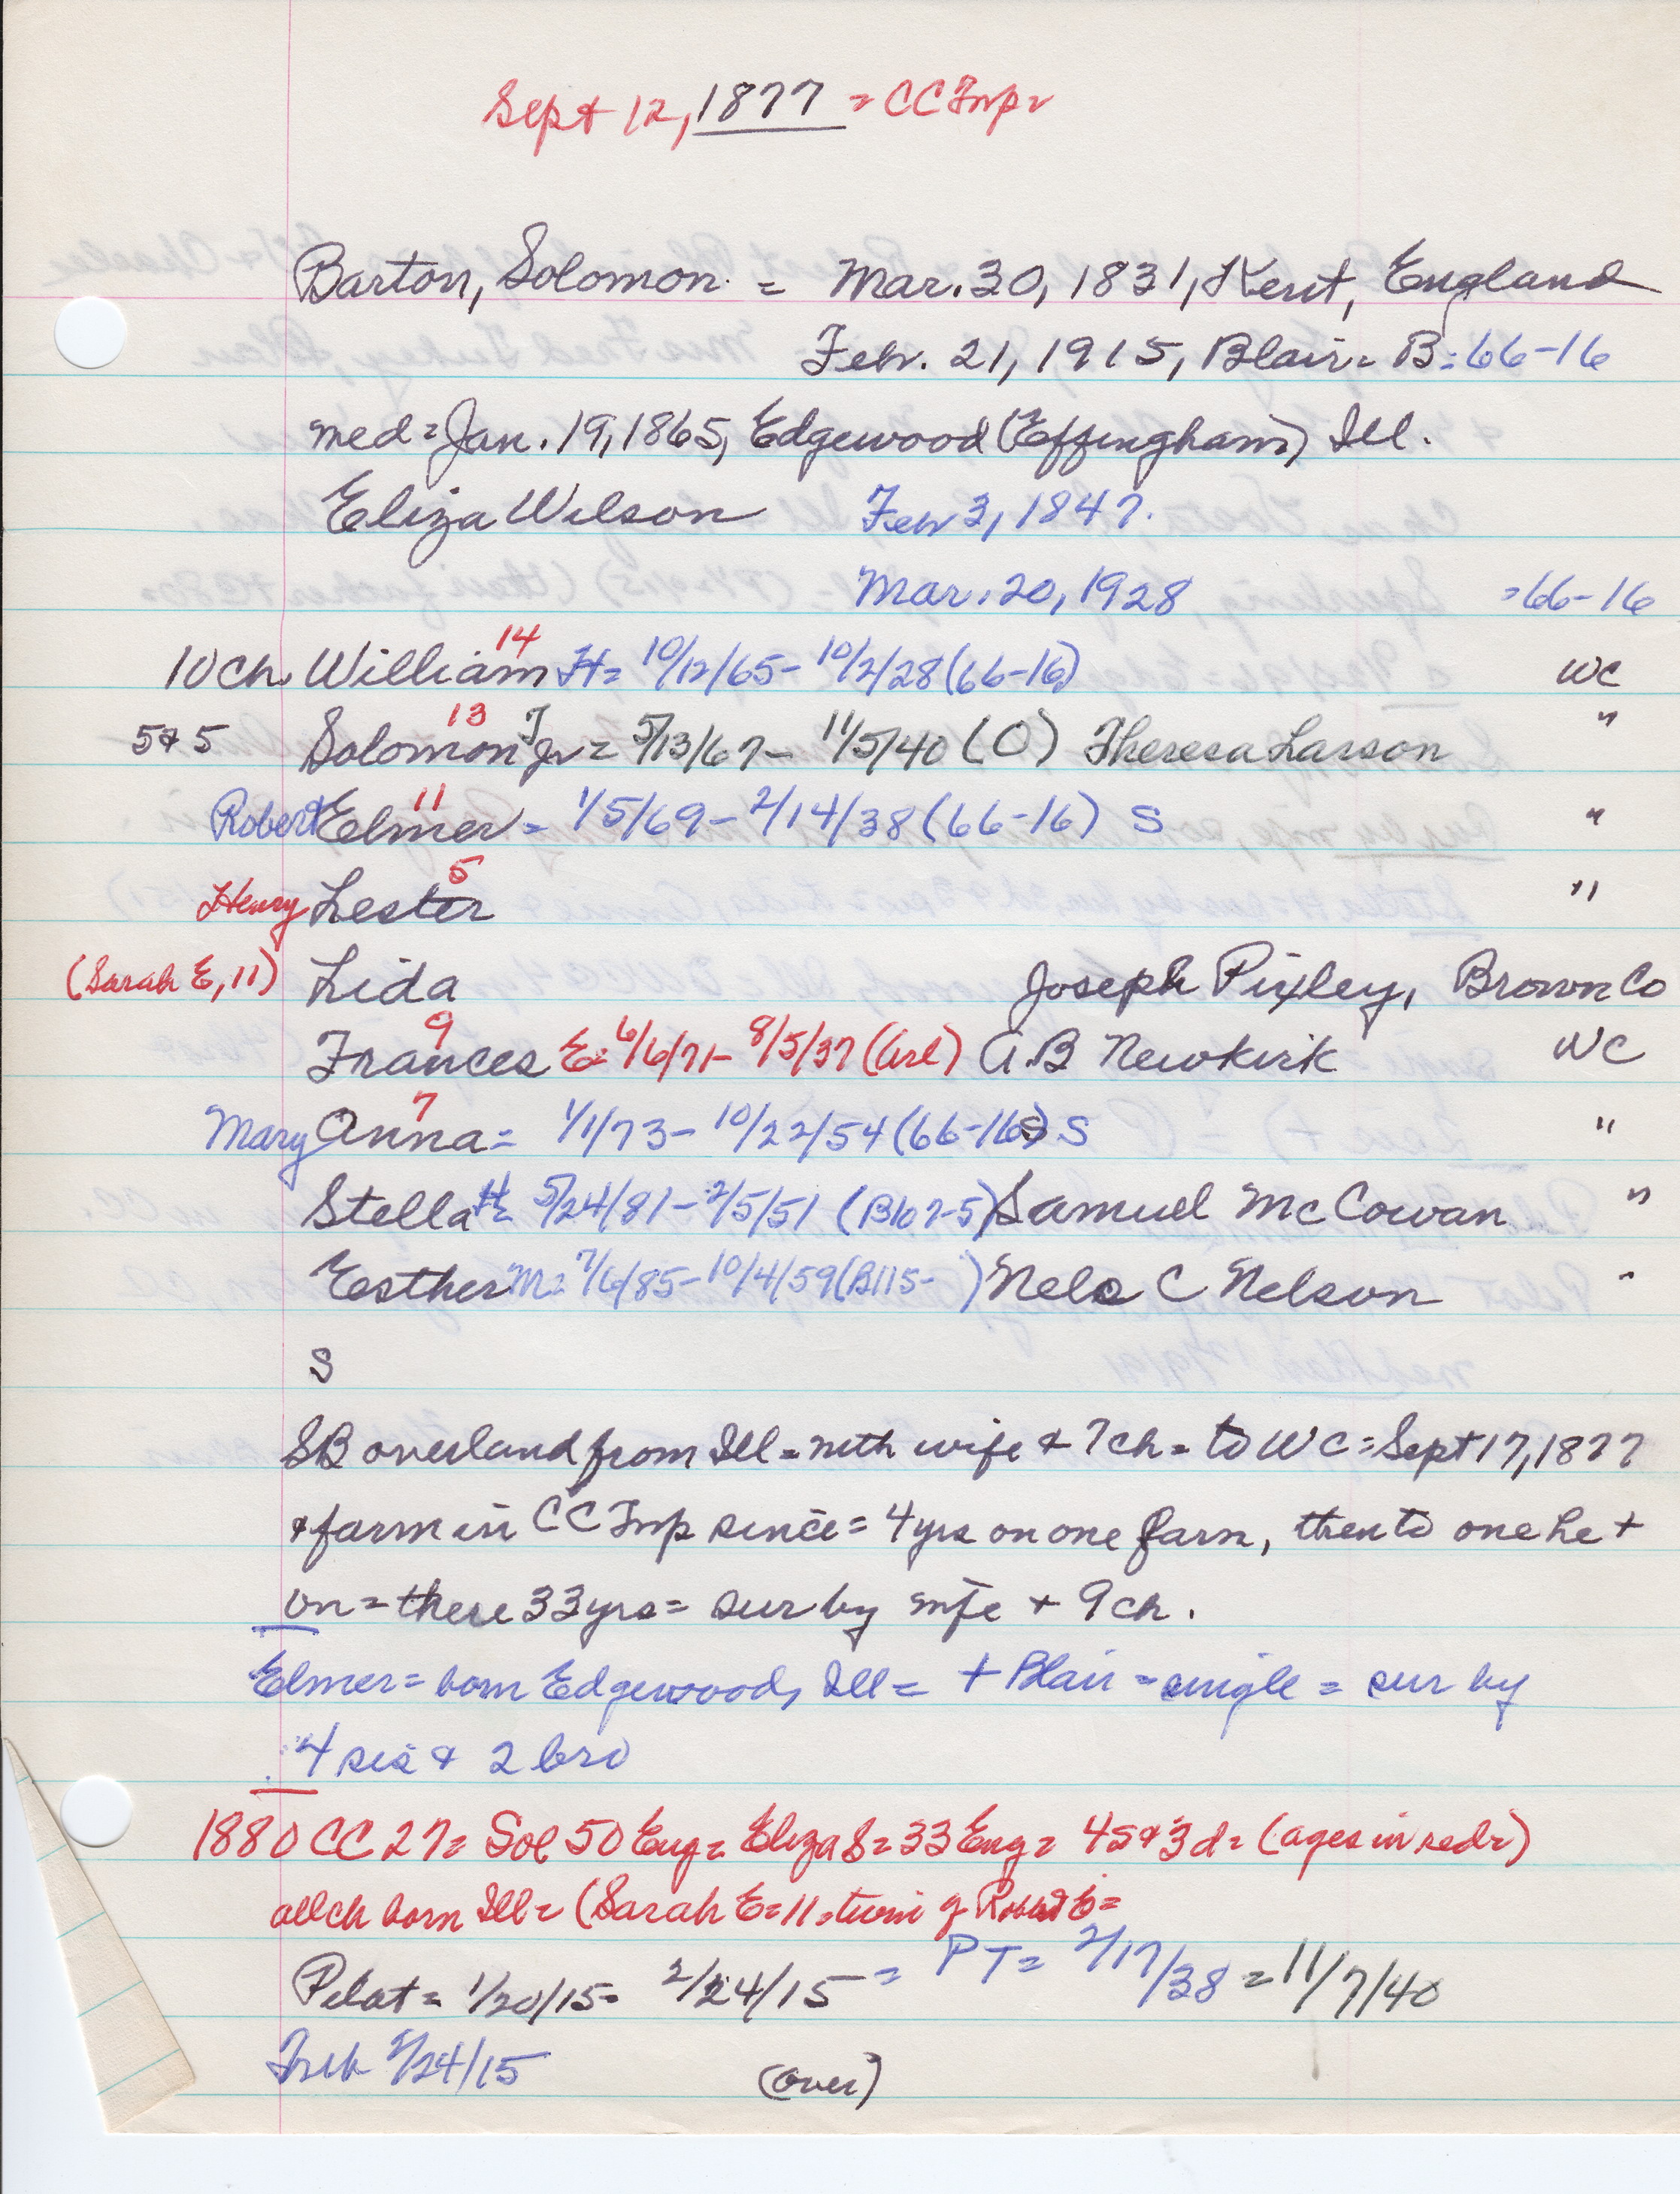 Sept 12, 1877 = CC Twp=
Barton, Solomon = Mar. 30, 1831, Kent, England
Feb. 21, 1915, Blair = B=66-16
med = Jan. 19, 1865, Edgewood (Effingham) Ill.
Eliza Wilson Feb 3, 1847.
Mar. 20, 1928 =66-16
10 ch. William 14 H= 10/12/65- 10/2/28 (66-16) WC
5 & 5 Solomon 13 J Jr = 5/13/67- 11/5/40 (O) Theresa Larson "
Robert Elmer 11 = 1/5/69- 2/14/38 (66-16) S "
Henry Lester 5 "
(Sarah E, 11) Lida Joseph Pixley, Brown Co
Frances 9 E= 6/6/71- 8/5/37 (Arl) A.B Newkirk WC
Mary Anna 7 = 1/1/73- 10/22/54 (66-16) S "
Stella H= 5/24/81- 2/5/51 (B107-5) Samuel McCowan "
Esther M= 7/6/85- 10/4/59 (B115- ) Nels C Nelson "
S
SB overland from Ill = with wife & 7 ch = to WC = Sept 17, 1877
& farm in CC Twp since = 4 yrs on one farm, then to one he +
on = there 33 yrs = sur by wife + 9 ch.
Elmer = born Edgewood, Ill = + Blair = single = sur by
4 sis & 2 bro
1880 CC 27= Sol 50 Eng= Eliza S= 33 Eng= 4s & 3d= (ages in red=)
all ch born Ill= (Sarah E=11= twin of Robert E=
Pilot = 1/20/15= 2/24/15 = PT= 2/17/38 = 11/7/40
Trib 2/24/15 (over)